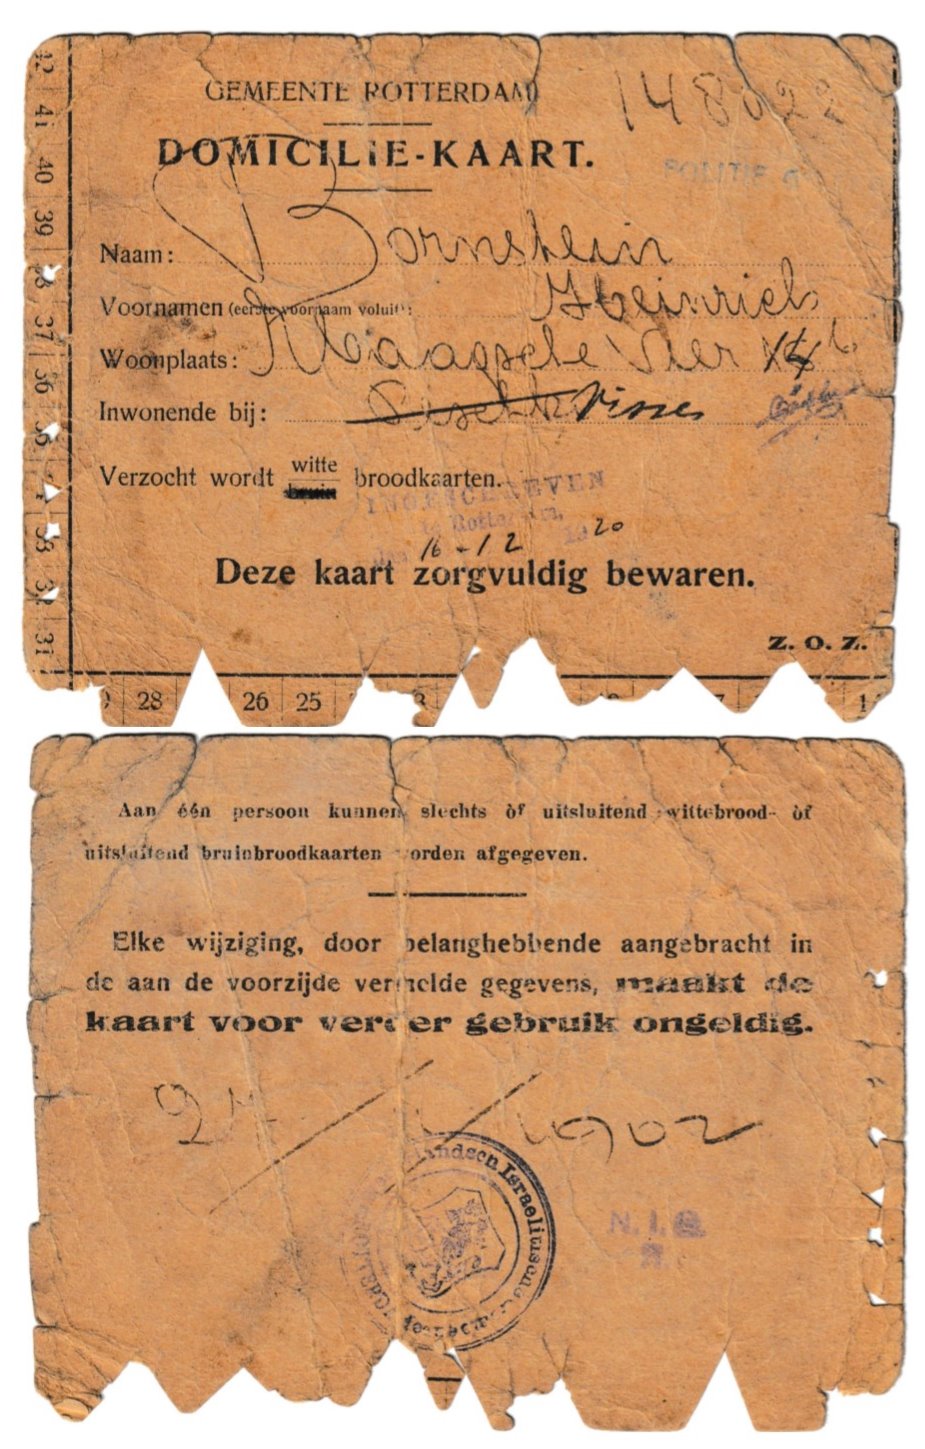 GEMEENTE ROTTERDAM
148022
DOMICILIE-KAART.
POLITIE
Naam: Bornstein
Voornamen (eerste voornaam voluit): Heinrich
Woonplaats: Maagsche Vier
Inwonende bij: Visser
Verzocht wordt witte bruin broodkaarten.
INGESCHREVEN
te Rotterdam,
16-12 1920
Deze kaart zorgvuldig bewaren.
Z. O. Z.
42 41 40 39 38 37 36 35 33 32 31
28 26 25 1
Aan één persoon kunnen slechts òf uitsluitend wittebrood- òf
uitsluitend bruinbroodkaarten worden afgegeven.
Elke wijziging, door belanghebbende aangebracht in
de aan de voorzijde vermelde gegevens, maakt de
kaart voor verder gebruik ongeldig.
24 / 1 / 1902
N. I. G.